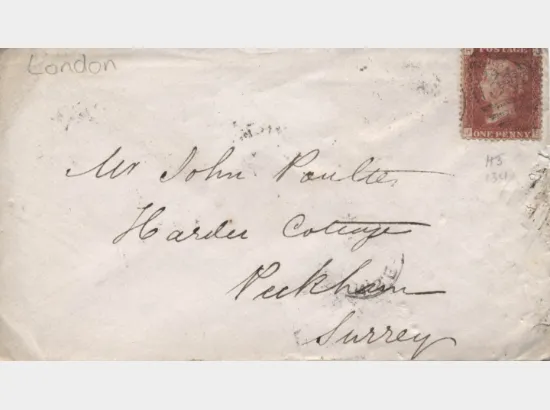 London
POSTAGE
ONE PENNY
Mr John Poulter
Harder Cottage
Peckham
Surrey